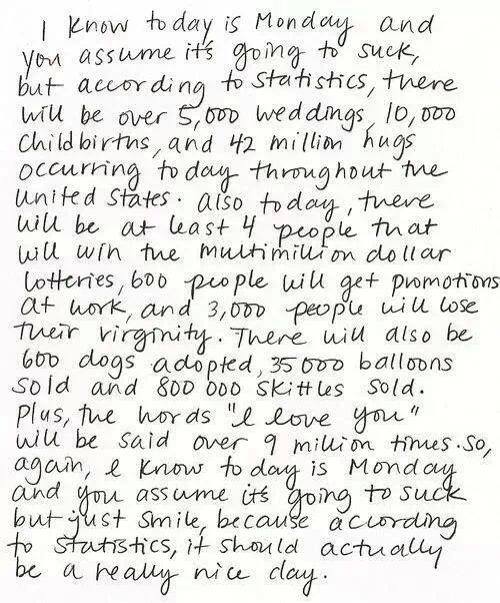 I know today is Monday and
you assume it's going to suck,
but according to statistics, there
will be over 5,000 weddings, 10,000
childbirths, and 42 million hugs
occurring today throughout the
united states. also today, there
will be at least 4 people that
will win the multimillion dollar
lotteries, 600 people will get promotions
at work, and 3,000 people will lose
their virginity. There will also be
600 dogs adopted, 35 000 balloons
sold and 800 000 skittles sold.
Plus, the words "I love you"
will be said over 9 million times. So,
again, I know today is Monday
and you assume it's going to suck
but just smile, because according
to statistics, it should actually
be a really nice day.